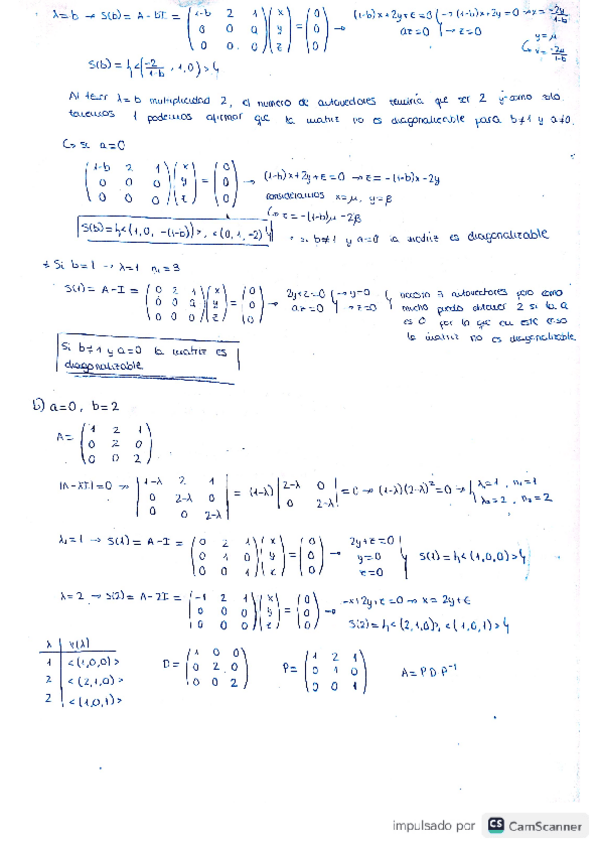 λ=b → S(b) = A - bI = (1-b 2 1 / 0 0 a / 0 0 0)(x / y / z) = (0 / 0 / 0) → (1-b)x+2y+z=0 } → (1-b)x+2y=0 → x = -2y/1-b
az=0 } → z=0
y=μ
↳ x = -2μ/1-b
S(b) = {<(-2/1-b, 1, 0)>}
Al tener λ=b multiplicidad 2, el numero de autovectores tendria que ser 2 y como solo
tenemos 1 podemos afirmar que la matriz no es diagonalizable para b≠1 y a≠0.
↳ si a=0
(1-b 2 1 / 0 0 0 / 0 0 0)(x / y / z) = (0 / 0 / 0) → (1-b)x+2y+z=0 → z = -(1-b)x-2y
x=μ, y=β
↳ z = -(1-b)μ-2β
S(b) = {<(1,0, -(1-b))>, <(0,1,-2)}
si b≠1 y a=0 la matriz es diagonalizable
* Si b=1 → λ=1 n₁=3
S(1) = A-I = (0 2 1 / 0 0 a / 0 0 0)(x / y / z) = (0 / 0 / 0) → 2y+z=0 } → y=0
az=0 } → z=0
necesito 3 autovectores pero como
mucho puedo obtener 2 si la a
es 0 por lo que en este caso
la matriz no es diagonalizable
Si b≠1 y a=0 la matriz es
diagonalizable
b) a=0, b=2
A = (1 2 1 / 0 2 0 / 0 0 2)
|A-λI|=0 → |1-λ 2 1 / 0 2-λ 0 / 0 0 2-λ| = (1-λ) |2-λ 0 / 0 2-λ| = 0 → (1-λ)(2-λ)²=0 → { λ₁=1, n₁=1
λ₂=2, n₂=2
λ₁=1 → S(1) = A-I = (0 2 1 / 0 1 0 / 0 0 1)(x / y / z) = (0 / 0 / 0) → 2y+z=0
y=0
z=0
S(1) = {<(1,0,0)>}
λ=2 → S(2) = A-2I = (-1 2 1 / 0 0 0 / 0 0 0)(x / y / z) = (0 / 0 / 0) → -x+2y+z=0 → x=2y+z
S(2) = {<(2,1,0)>, <(1,0,1)>}
λ | V(λ)
1 | <(1,0,0)>
2 | <(2,1,0)>
2 | <(1,0,1)>
D = (1 0 0 / 0 2 0 / 0 0 2)
P = (1 2 1 / 0 1 0 / 0 0 1)
A = P D P⁻¹
impulsado por CS CamScanner